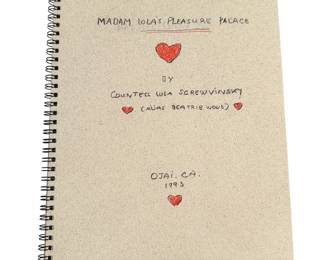 MADAM LOLA'S PLEASURE PALACE
BY
COUNTESS LOLA SCREWVINSKY
(ALIAS BEATRICE WOOD)
OJAI. CA.
1993